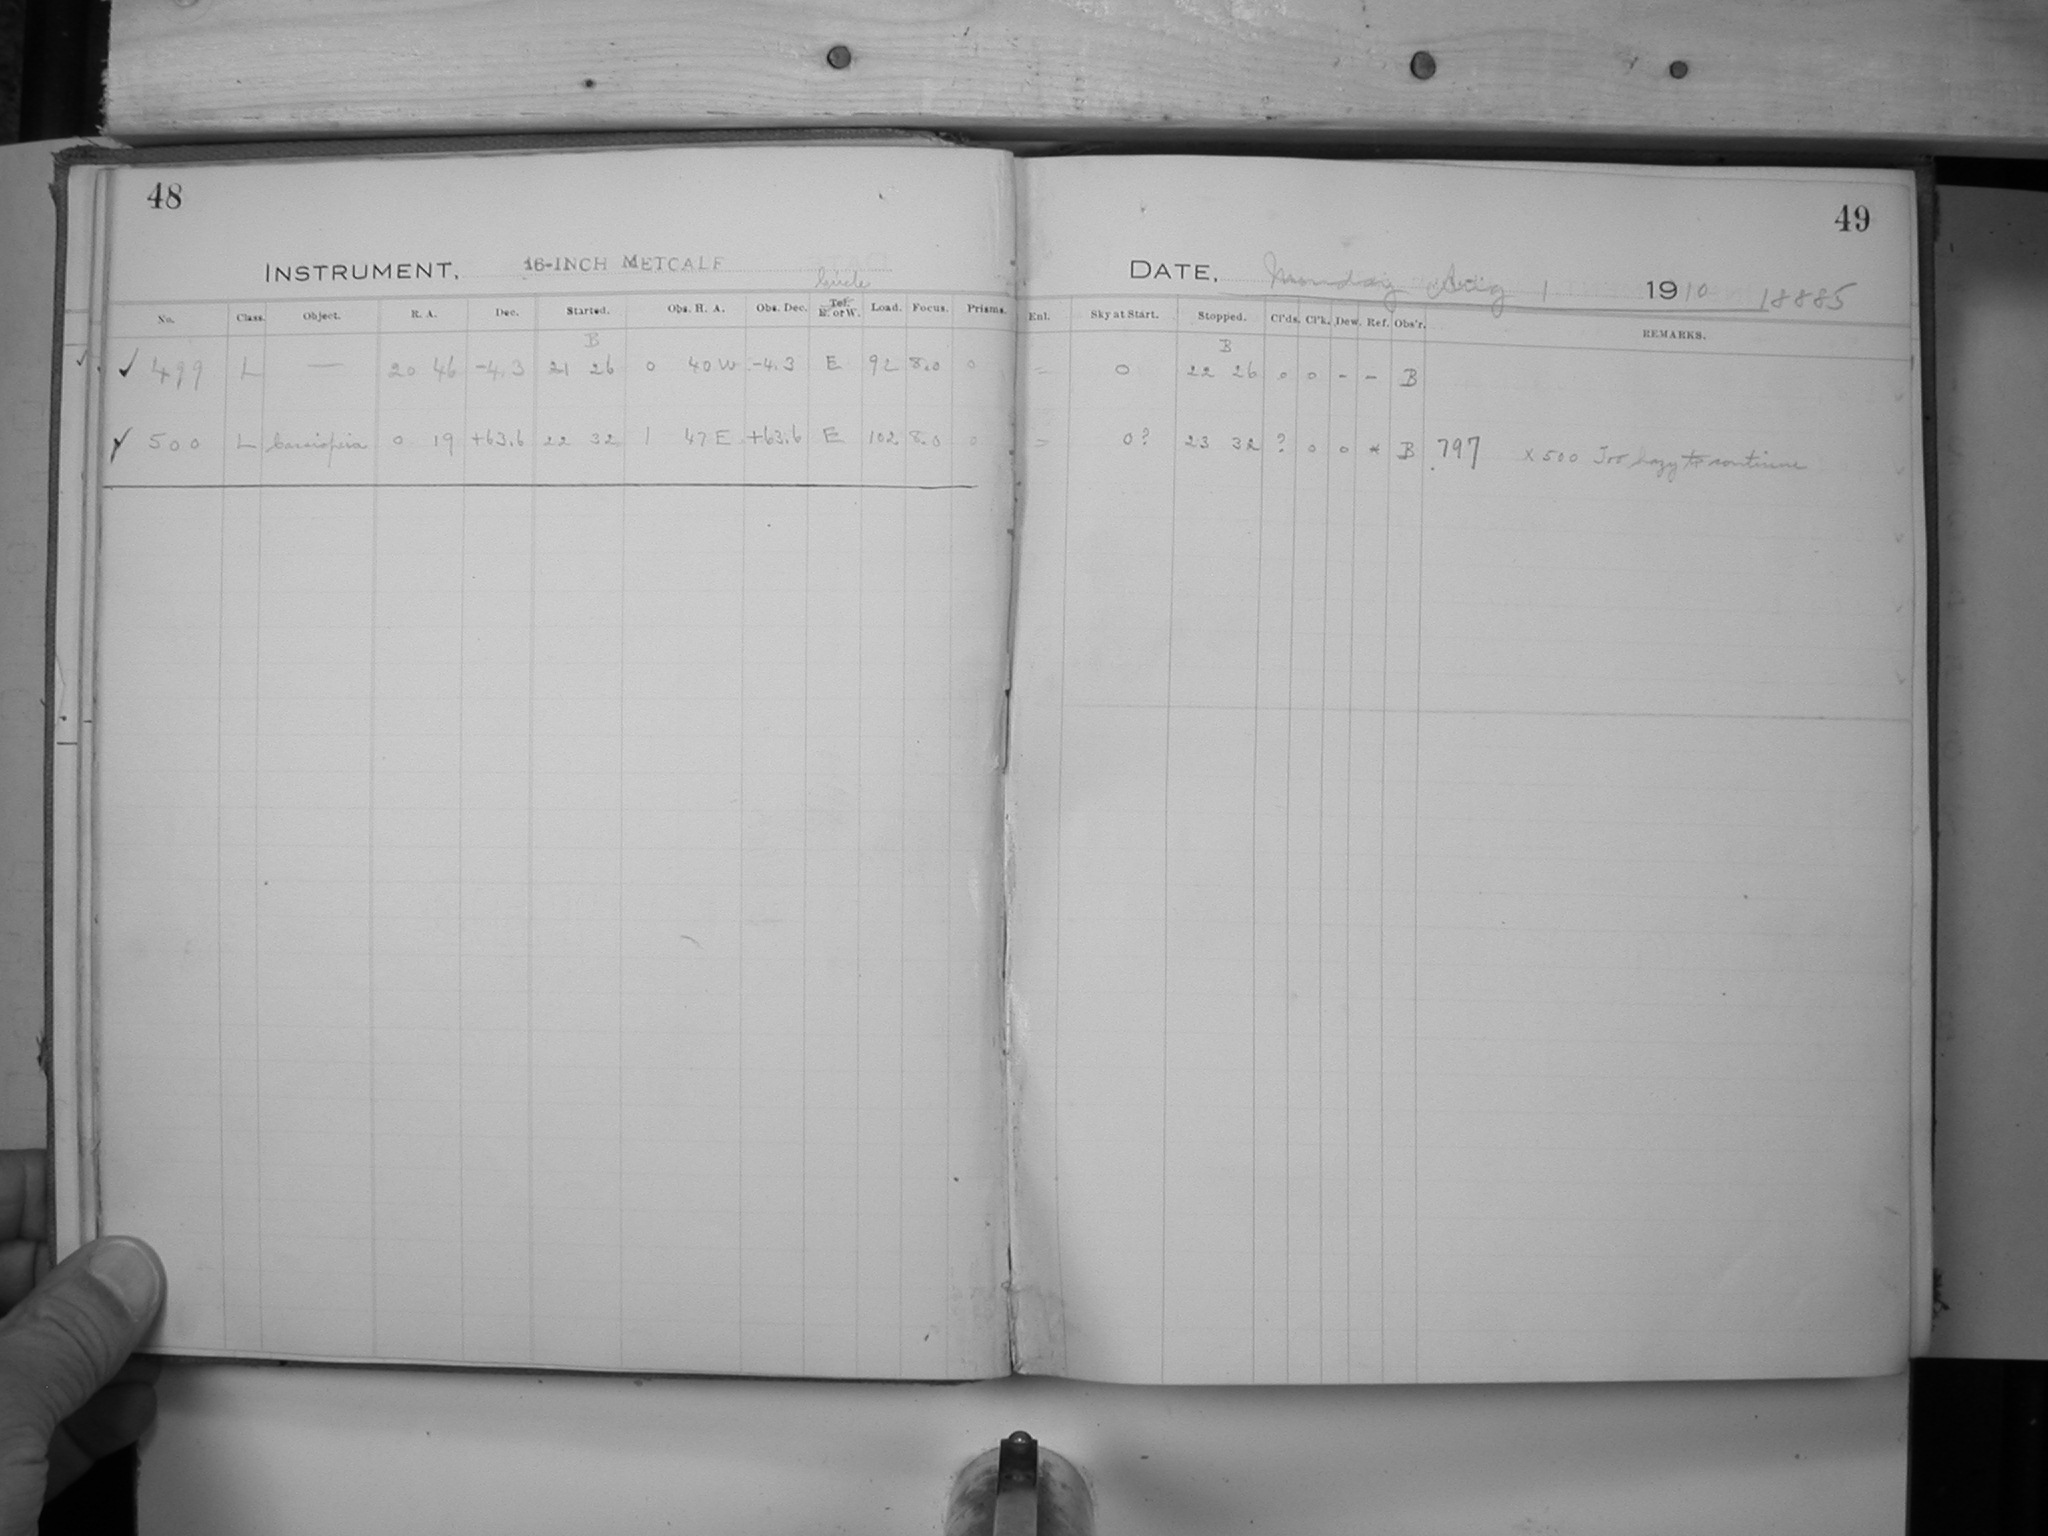 48
49
INSTRUMENT, 16-INCH METCALF
DATE, Monday Aug 1 1910 18885
Circle
No. Class. Object. R. A. Dec. Started. Obs. H. A. Obs. Dec. Tel. E. or W. Load. Focus. Prisms.
Enl. Sky at Start. Stopped. Cl'ds. Cl'k. Dew. Ref. Obs'r. REMARKS.
B B
✓ 499 L — 20 46 -4.3 21 26 0 40 W -4.3 E 92 8.0 0 - 0 22 26 0 0 - - B
✓ 500 L Cassiopeia 0 19 +63.6 22 32 1 47 E +63.6 E 102 8.0 0 = 0? 23 32 ? 0 0 * B 797 X 500 Too hazy to continue